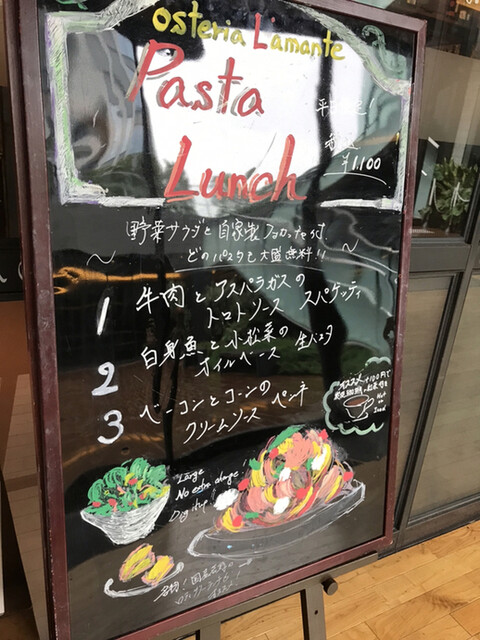 osteria L'amante
Pasta
Lunch
¥1.100
野菜サラダと自家製フォカッチャつき!
どのパスタも大盛無料!!
1 牛肉とアスパラガスの
トマトソース スパゲッティ
2 白身魚と小松菜の
オイルベース 生パスタ
3 ベーコンとコーンの
クリームソース ペンネ
オススメ +100円で
Hot
or
Iced
Large
No extra charge!